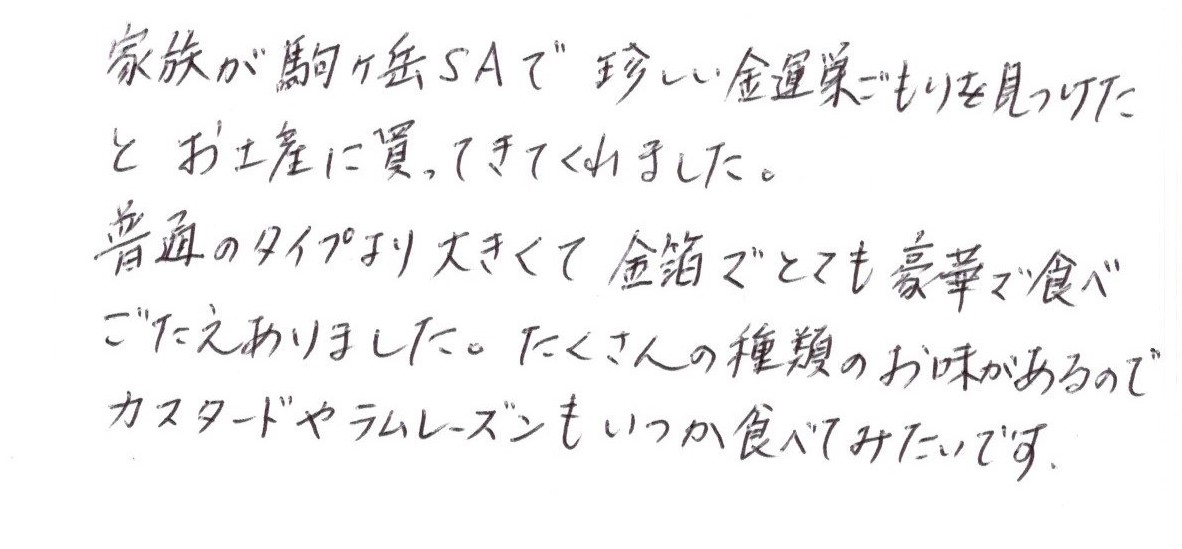 家族が駒ヶ岳SAで珍しい金運巣ごもりを見つけた
とお土産に買ってきてくれました。
普通のタイプより大きくて金箔でとても豪華で食べ
ごたえありました。たくさんの種類のお味があるので
カスタードやラムレーズンもいつか食べてみたいです.